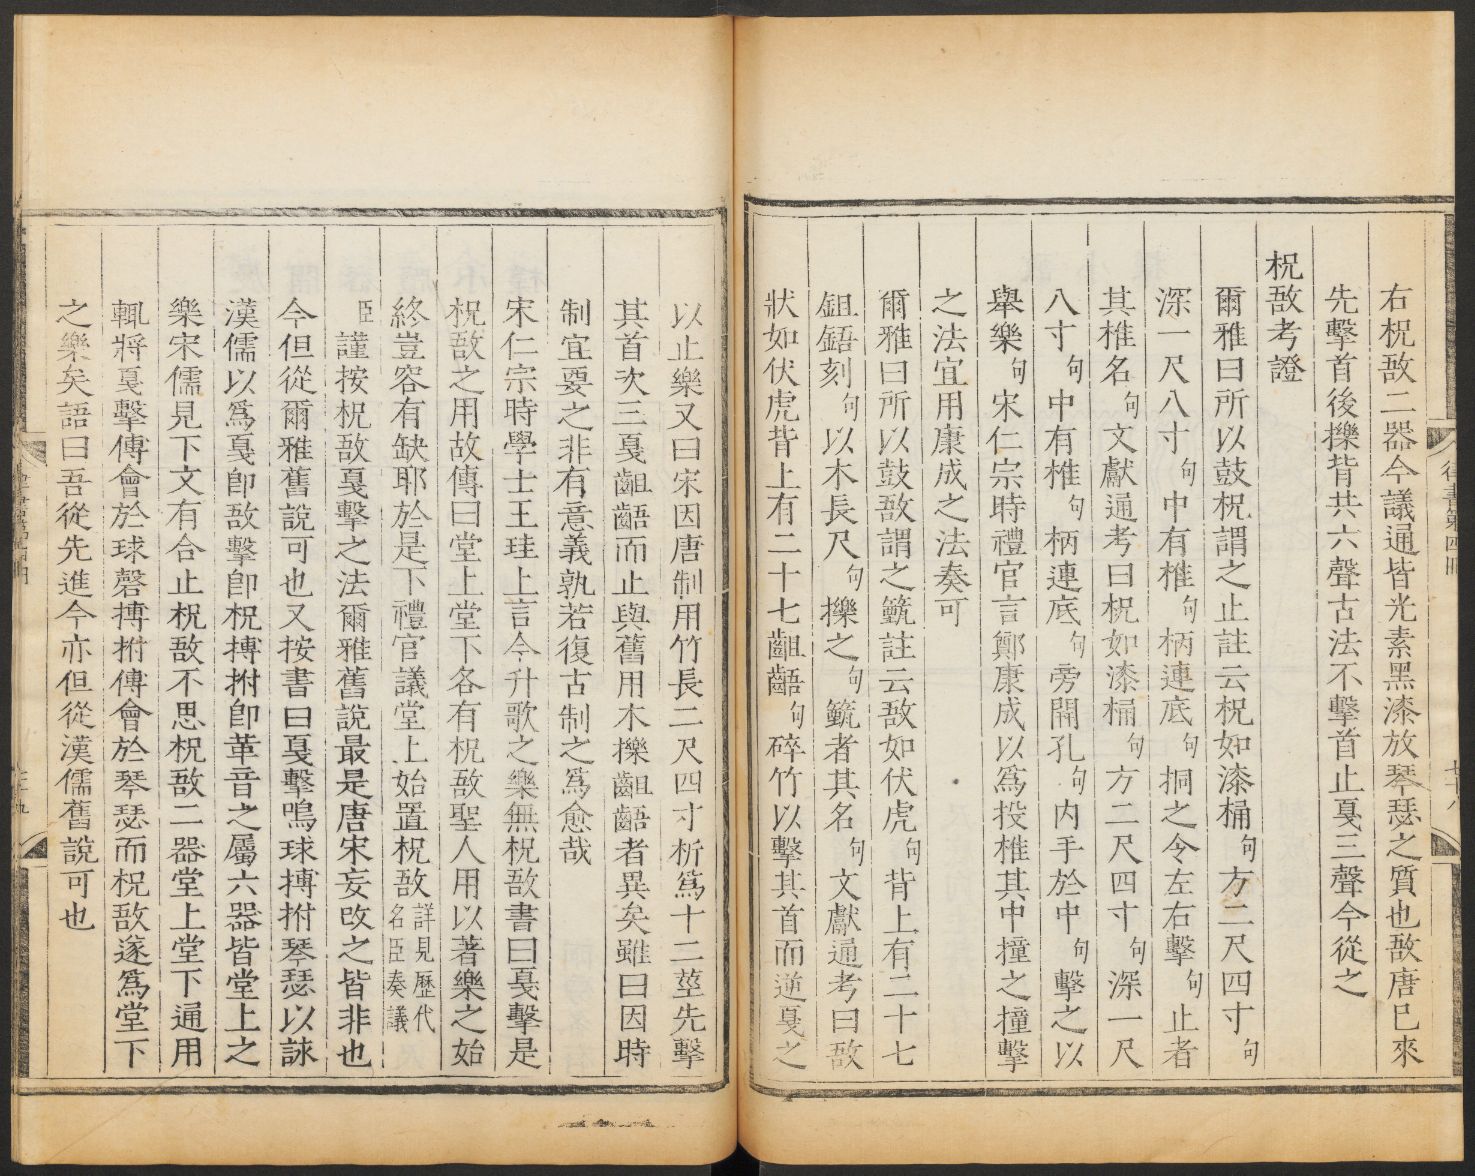 右柷敔二器今議通皆光素黑漆放琴瑟之質也敔唐巳來
先擊首後擽背共六聲古法不擊首止戛三聲今從之
柷敔考證
爾雅曰所以鼓柷謂之止註云柷如漆桶句方二尺四寸句
深一尺八寸句中有椎句柄連底句挏之令左右擊句止者
其椎名句文獻通考曰柷如漆桶句方二尺四寸句深一尺
八寸句中有椎句柄連底句旁開孔句內手於中句擊之以
舉樂句宋仁宗時禮官言鄭康成以爲投椎其中撞之撞擊
之法宜用康成之法奏可
爾雅曰所以鼓敔謂之籈註云敔如伏虎句背上有二十七
鉏鋙刻句以木長尺句擽之句籈者其名句文獻通考曰敔
狀如伏虎背上有二十七齟齬句碎竹以擊其首而逆戛之
以止樂又曰宋因唐制用竹長二尺四寸析爲十二莖先擊
其首次三戛齟齬而止與舊用木擽齟齬者異矣雖曰因時
制宜要之非有意義孰若復古制之爲愈哉
宋仁宗時學士王珪上言今升歌之樂無柷敔書曰戛擊是
柷敔之用故傳曰堂上堂下各有柷敔聖人用以著樂之始
終豈容有缺耶於是下禮官議堂上始置柷敔詳見歷代名臣奏議
臣謹按柷敔戛擊之法爾雅舊說最是唐宋妄改之皆非也
今但從爾雅舊說可也又按書曰戛擊鳴球搏拊琴瑟以詠
漢儒以爲戛卽敔擊卽柷搏拊卽革音之屬六器皆堂上之
樂宋儒見下文有合止柷敔不思柷敔二器堂上堂下通用
輒將戛擊傅會於球磬搏拊傅會於琴瑟而柷敔遂爲堂下
之樂矣語曰吾從先進今亦但從漢儒舊說可也